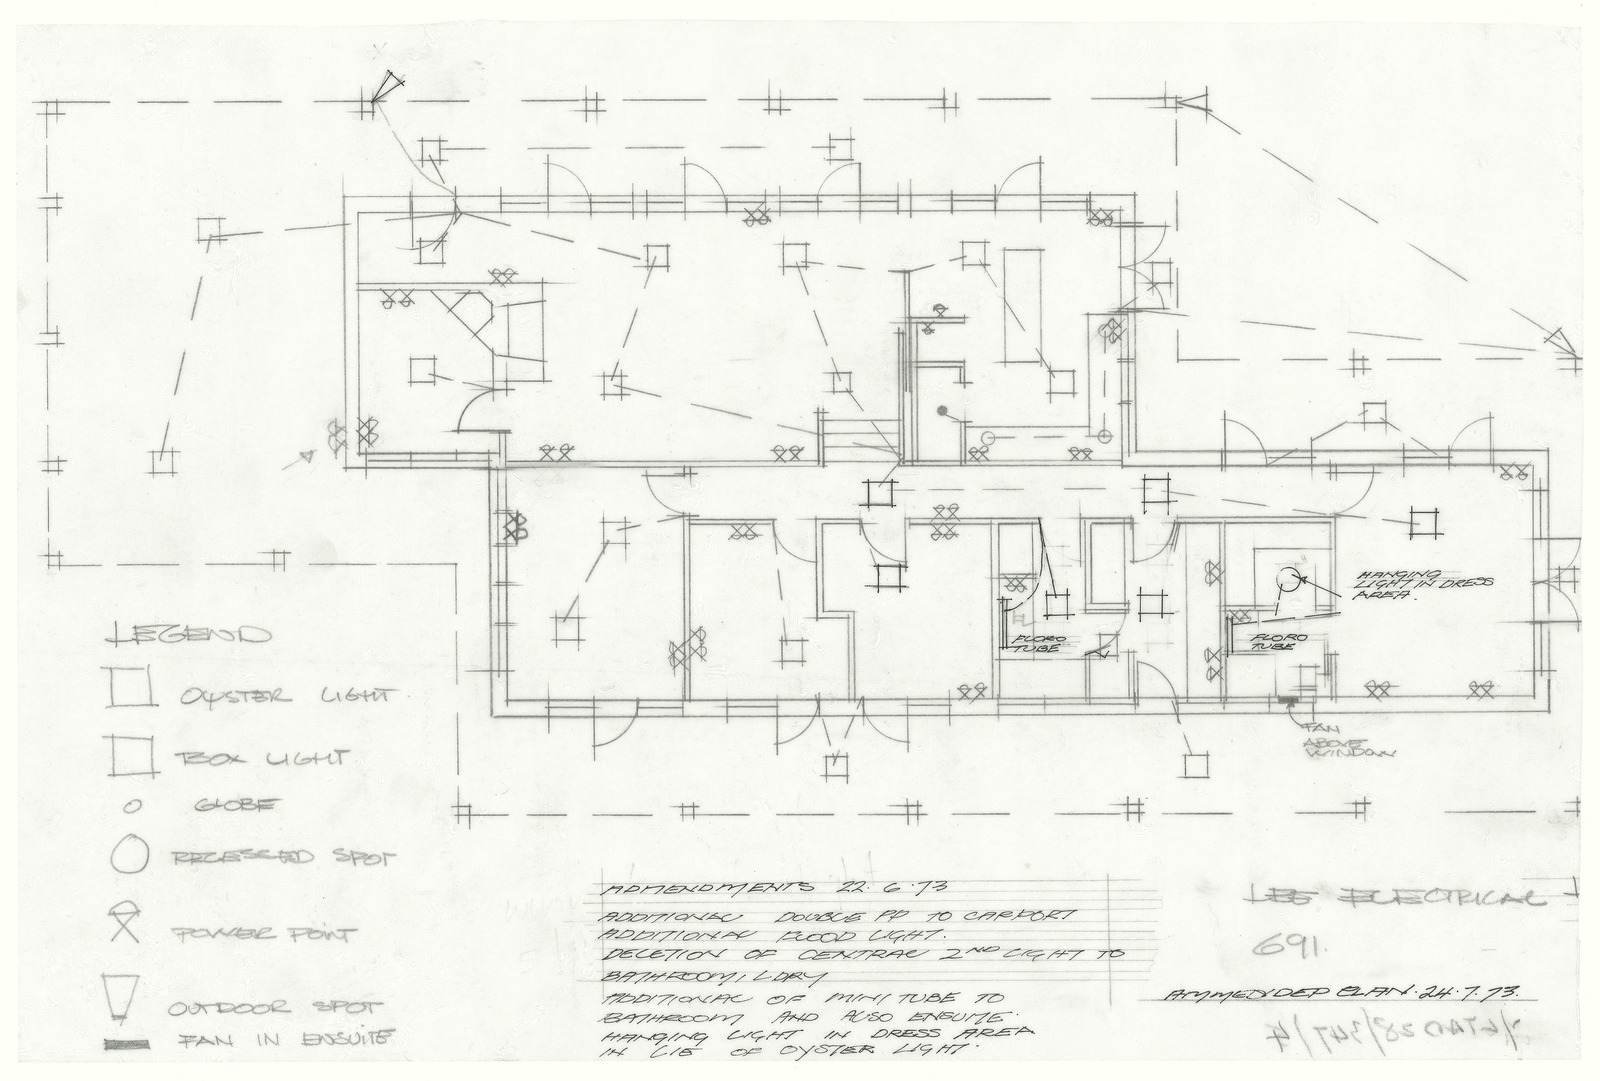 HANGING
LIGHT IN DRESS
AREA.
FLORO
TUBE
FLORO
TUBE
FAN
ABOVE
WINDOW
LEGEND
OYSTER LIGHT
BOX LIGHT
GLOBE
RECESSED SPOT
POWER POINT
OUTDOOR SPOT
FAN IN ENSUITE
ADMENDMENTS 22.6.73
ADDITIONAL DOUBLE PP TO CARPORT
ADDITIONAL FLOOD LIGHT.
DELETION OF CENTRAL 2ND LIGHT TO
BATHROOM, LDRY
ADDITIONAL OF MINI TUBE TO
BATHROOM AND ALSO ENSUITE.
HANGING LIGHT IN DRESS AREA
IN LIE OF OYSTER LIGHT.
LEE ELECTRICAL
691.
AMMENDED PLAN. 24.7.73.